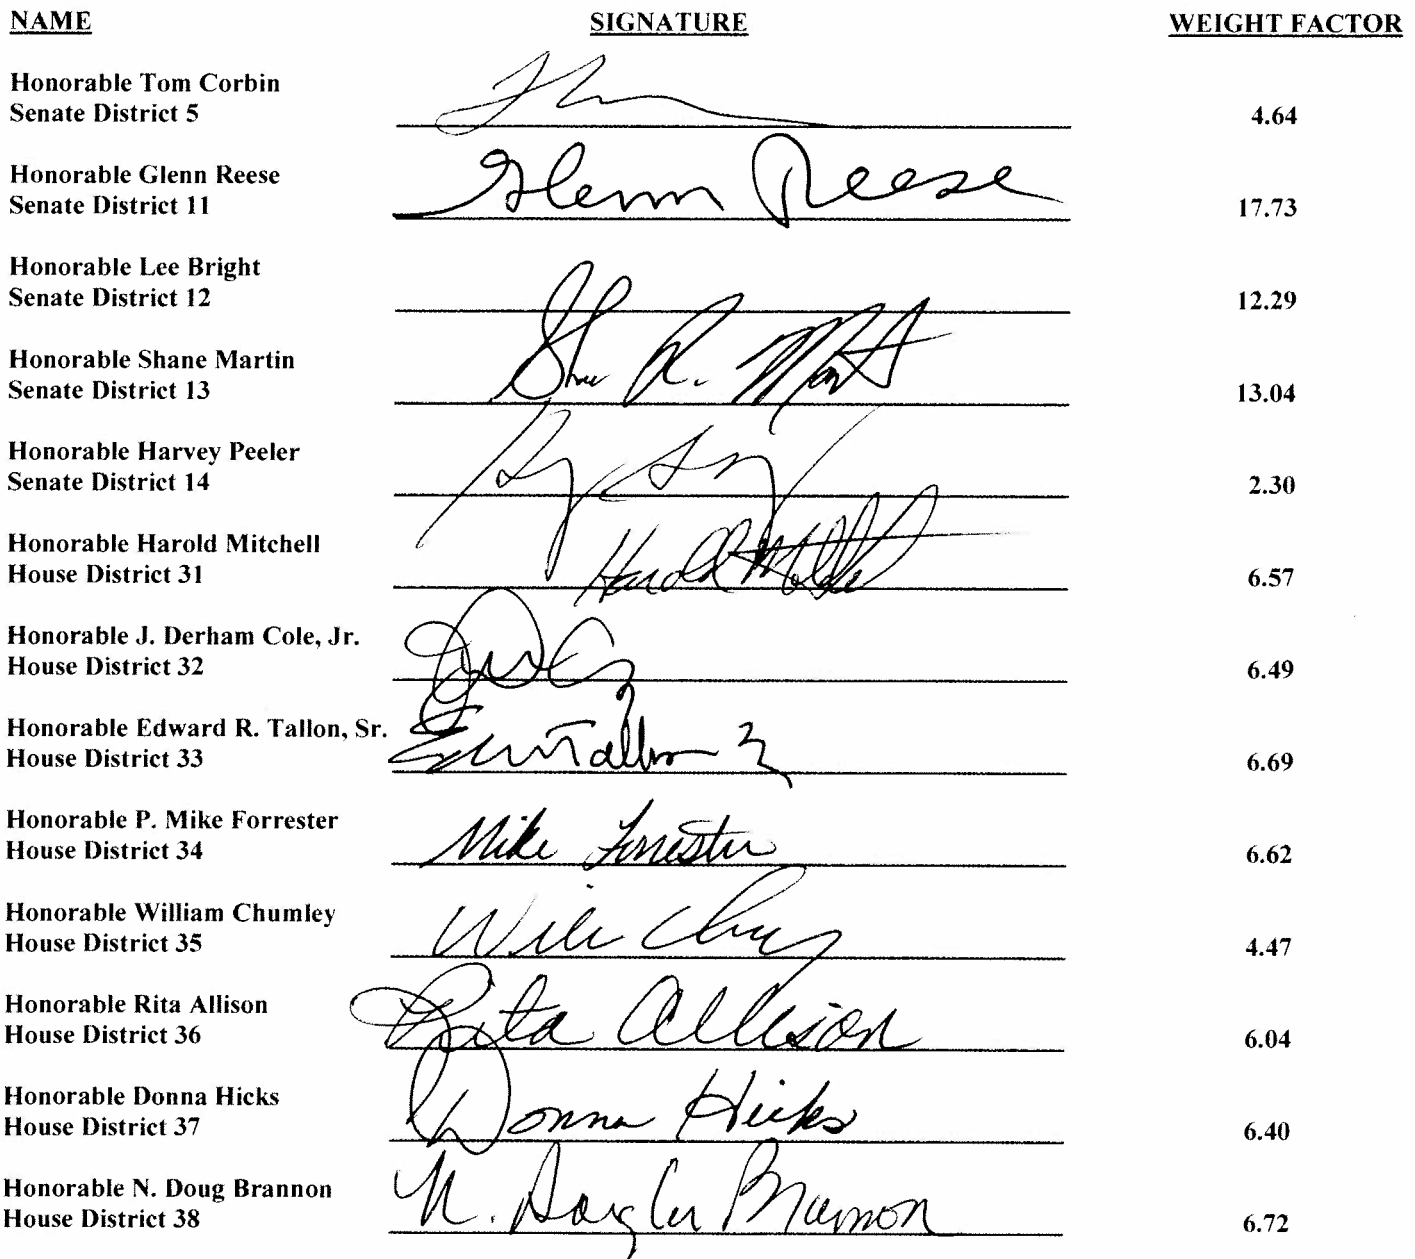 NAME SIGNATURE WEIGHT FACTOR
Honorable Tom Corbin
Senate District 5 4.64
Honorable Glenn Reese
Senate District 11 Glenn Reese 17.73
Honorable Lee Bright
Senate District 12 12.29
Honorable Shane Martin
Senate District 13 Shane R. Martin 13.04
Honorable Harvey Peeler
Senate District 14 2.30
Honorable Harold Mitchell
House District 31 Harold Mitchell 6.57
Honorable J. Derham Cole, Jr.
House District 32 6.49
Honorable Edward R. Tallon, Sr.
House District 33 Tallon 6.69
Honorable P. Mike Forrester
House District 34 Mike Forrester 6.62
Honorable William Chumley
House District 35 4.47
Honorable Rita Allison
House District 36 Rita Allison 6.04
Honorable Donna Hicks
House District 37 Donna Hicks 6.40
Honorable N. Doug Brannon
House District 38 N. Douglas Brannon 6.72